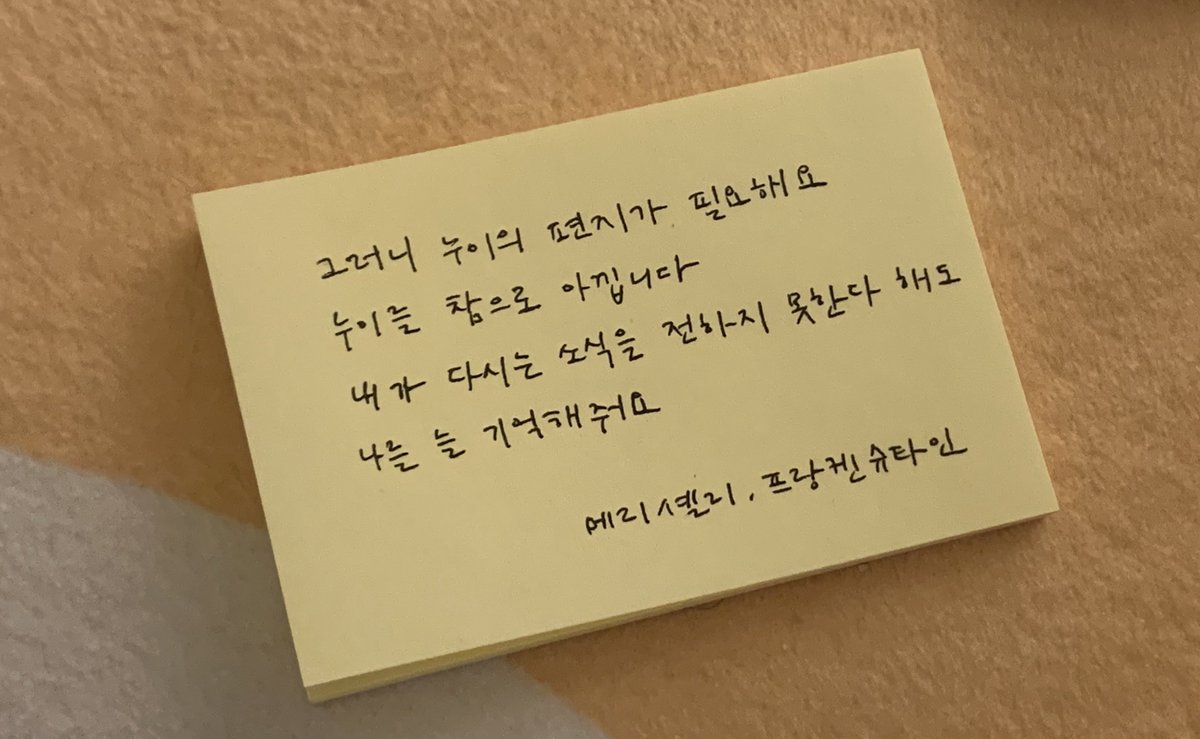 그러니 누이의 편지가 필요해요
누이를 참으로 아낍니다
내가 다시는 소식을 전하지 못한다 해도
나를 늘 기억해줘요
메리 셸리, 프랑켄슈타인